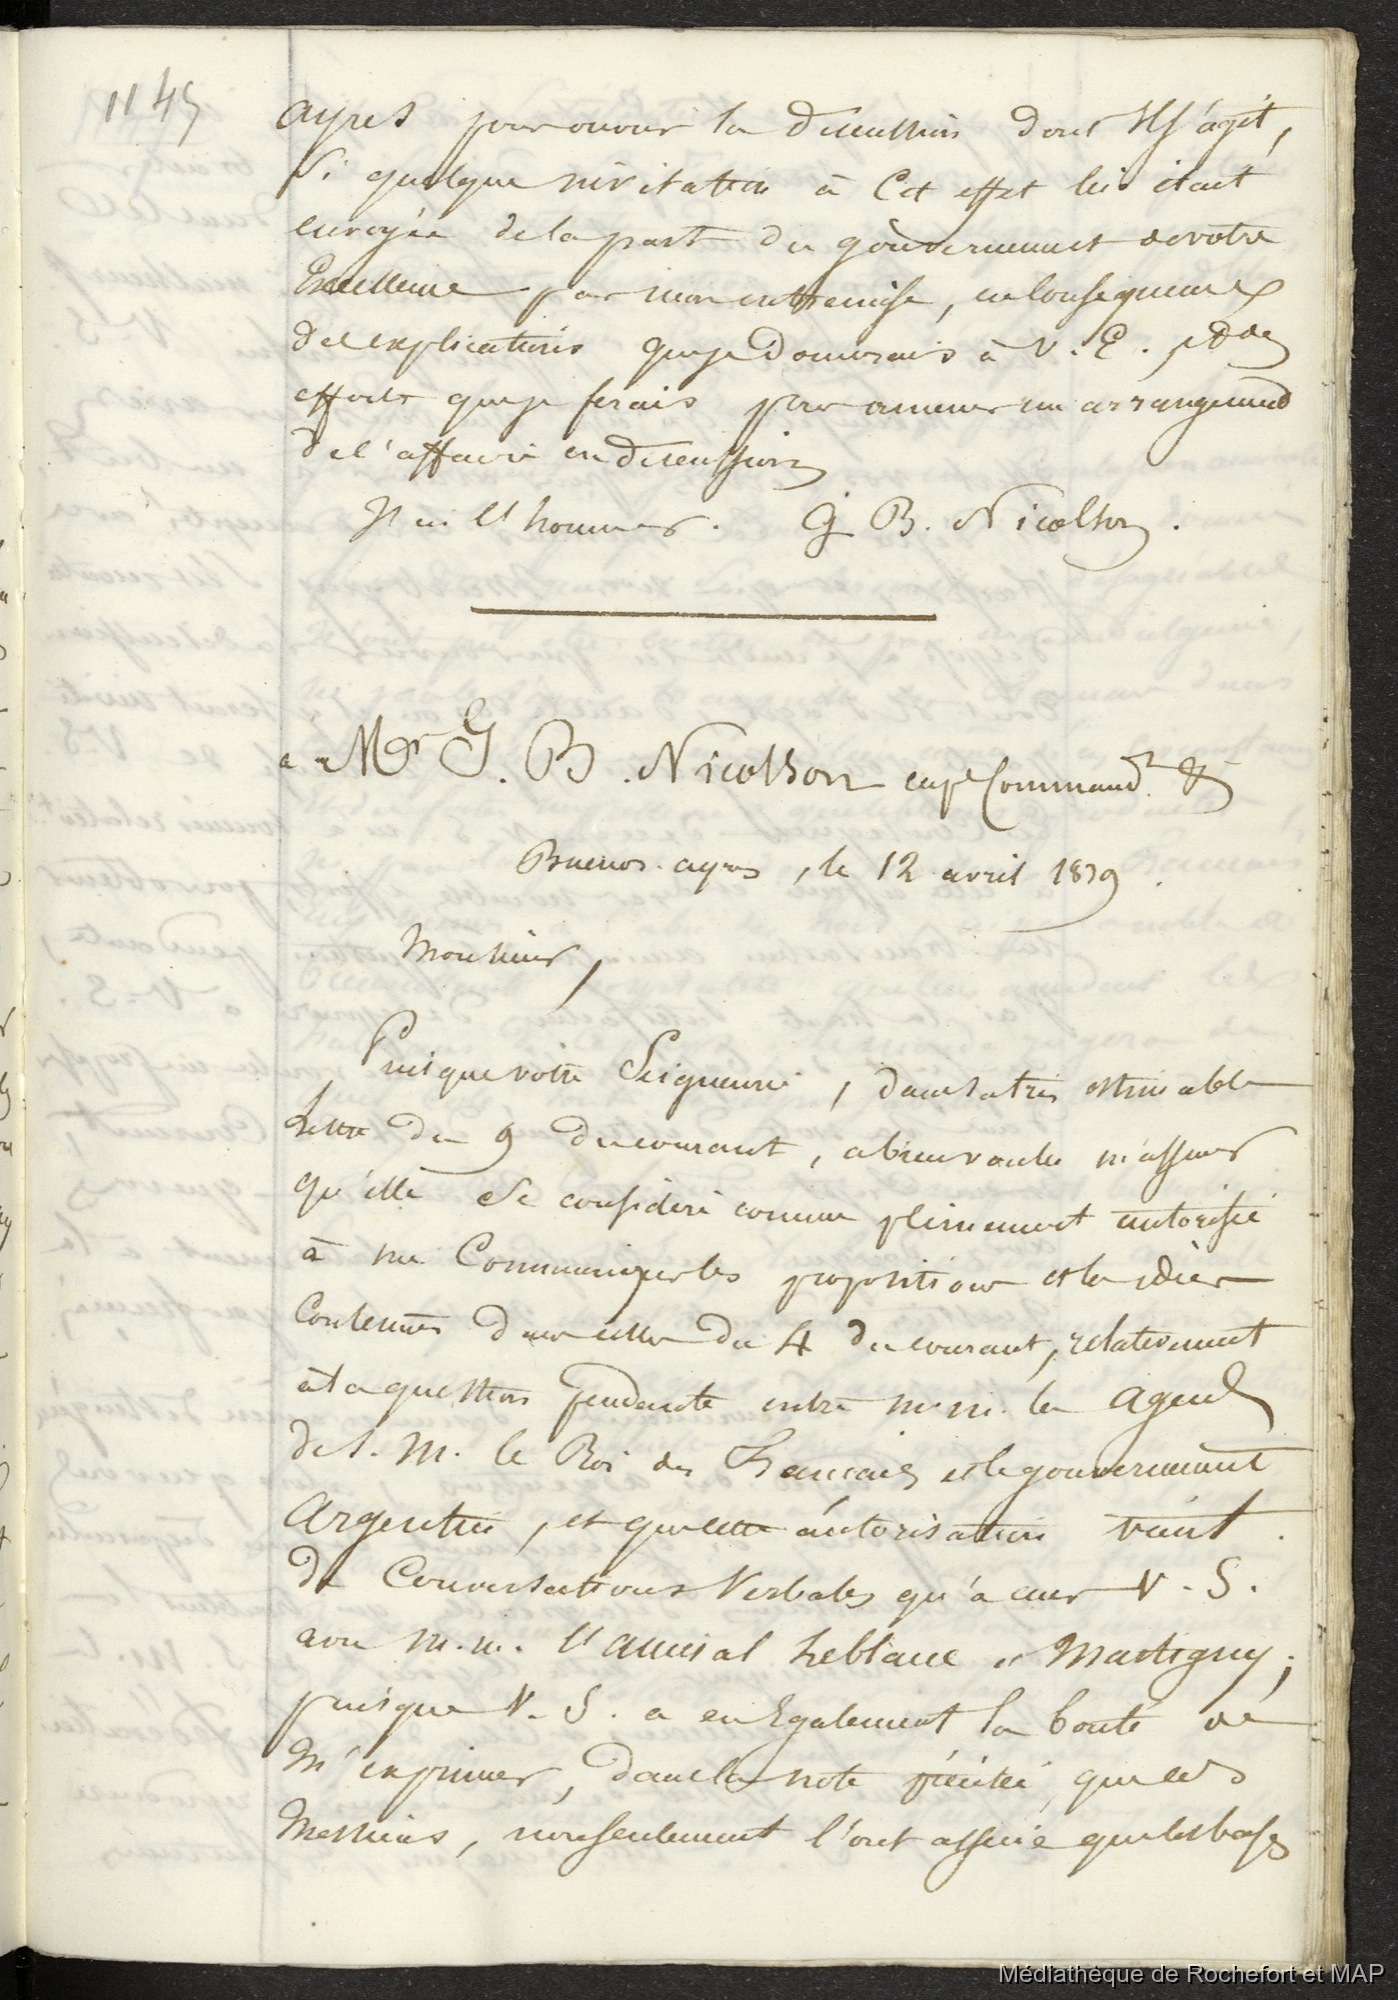 1145
ayres pour ouvrir la discussion dont il s'agit,
si quelque invitation à cet effet lui était
envoyée de la part du gouvernement de votre
Excellence par mon entremise, en conséquence
des explications que je donnerais à V. E. & des
efforts que je ferais pour amener un arrangement
de l'affaire en discussion
J'ai l'honneur. G B. Nicolson.
à Mr G. B. Nicolson cape Commandt &
Buenos-ayres, le 12 avril 1839.
Monsieur,
Puisque votre Seigneurie, dans sa très estimable
lettre du 9 du courant, a bien voulu m'assurer
qu'elle se considère comme pleinement autorisée
à me Communiquer les propositions et les idées
contenues dans celle du 4 du courant, relativement
à la question pendante entre m.m. les agents
de S. M. le Roi des Français et le gouvernement
argentin, et que cette autorisation vient
de Conversations Verbales qu'a eues V. S.
avec m.m. l'amiral Leblanc et Martigny;
puisque V. S. a eu également la bonté de
m'exprimer, dans la note précitée, que ces
Messieurs, non seulement l'ont assuré que les bases
Médiathèque de Rochefort et MAP